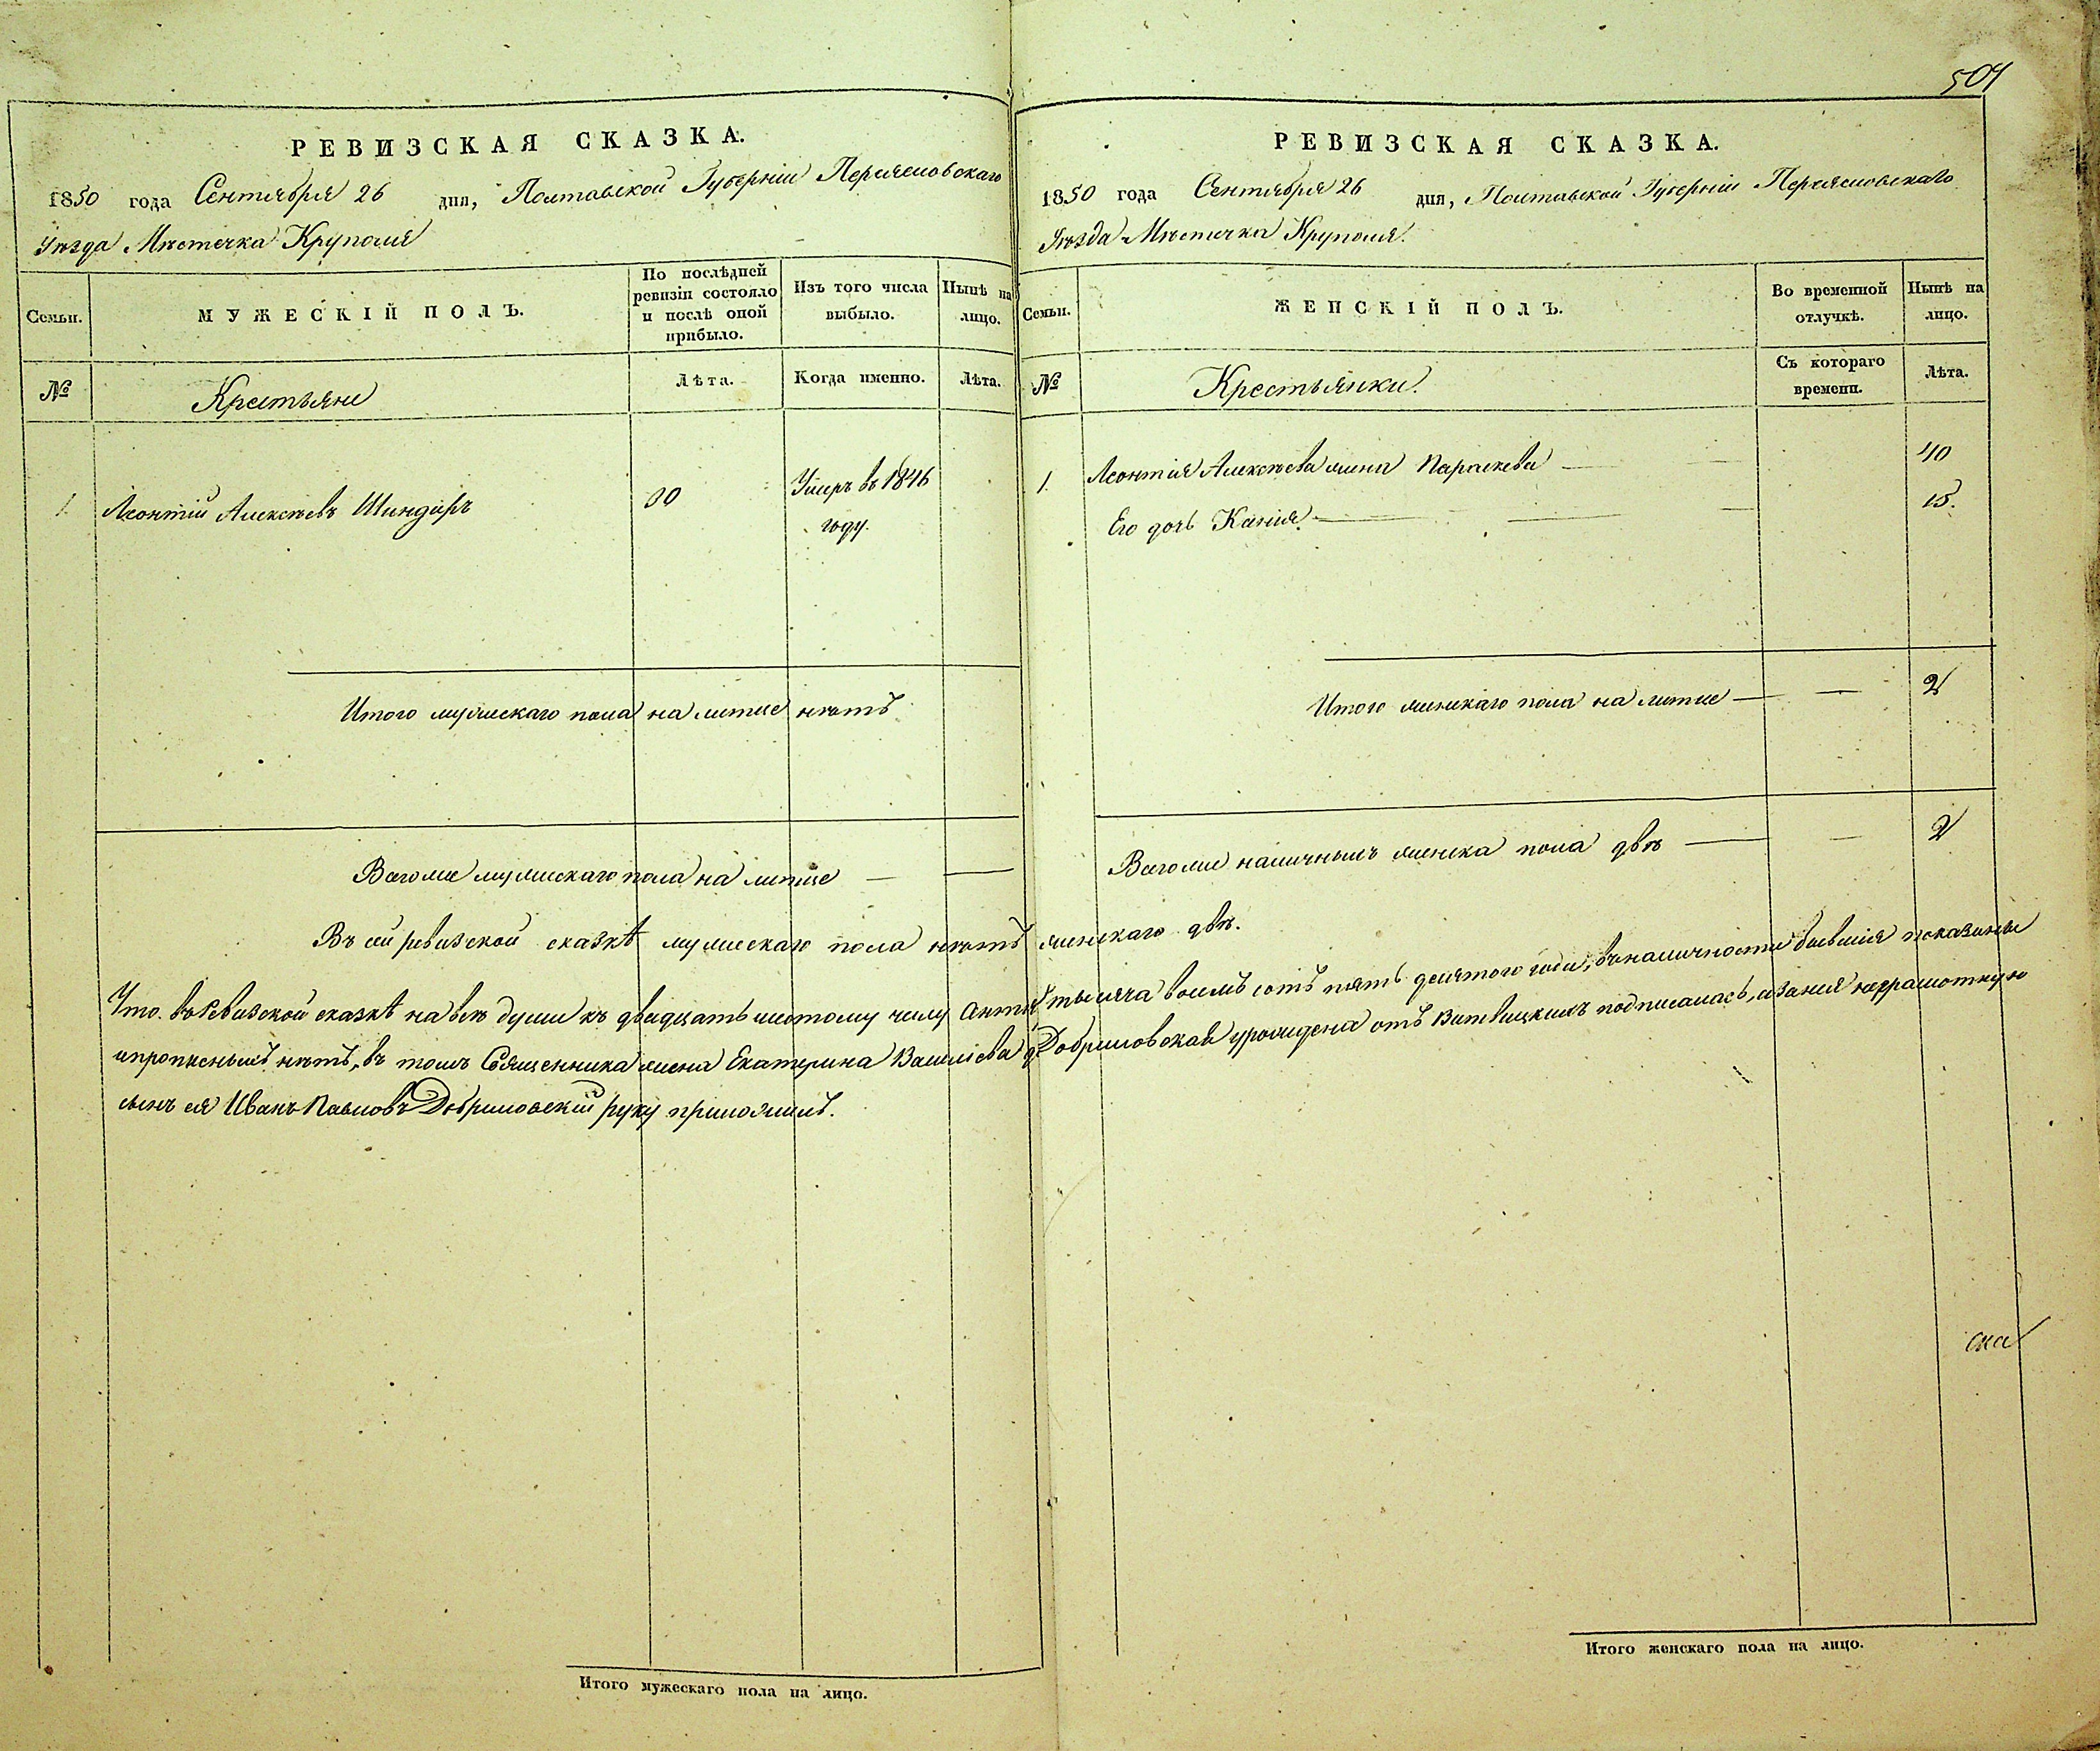 504
РЕВИЗСКАЯ СКАЗКА.
1850 года Сентября 26 дня, Полтавской Губерніи Переяславского
Уезда Мѣстечка Круполя
Семьи.
МУЖЕСКІЙ ПОЛЪ.
По послѣдней ревизіи состояло и послѣ оной прибыло.
Изъ того числа выбыло.
Нынѣ на лицо.
№
Крестьяне
Лѣта.
Когда именно.
Лѣта.
1. Леонтій Алексѣевъ Шиндиръ
30
Умеръ въ 1846
году.
Итого мужескаго пола на лицо нѣтъ
Всего же мужескаго пола на лице —
РЕВИЗСКАЯ СКАЗКА.
1850 года Сентября 26 дня, Полтавской Губерніи Переяславскаго
Уѣзда Мѣстечка Круполя.
Семьи.
ЖЕНСКІЙ ПОЛЪ.
Во временной отлучкѣ.
Нынѣ на лицо.
№
Крестьянки.
Съ котораго времени.
Лѣта.
1 Леонтія Алексѣева жена Параскева — 40
Его дочь — 15.
Итого женскаго пола на лице — — 2
Всего же наличныхъ женска пола двѣ — — 2
Въ сей ревизской сказкѣ мужескаго пола нѣтъ женскаго двѣ.
Что въ Ревизской сказкѣ на всѣ души къ двадцать шестому числу тысяча восемь сотъ пять десятого года, въ наличности бывшія показаны
и прописныхъ нѣтъ, въ томъ Священника жена Екатерина Василіева Добриловская урожденна отъ подписалась, а за нея неграмотную
сынъ ея Иванъ Павловъ Добриловский руку приложилъ.
Итого мужескаго пола на лицо.
Итого женскаго пола на лицо.